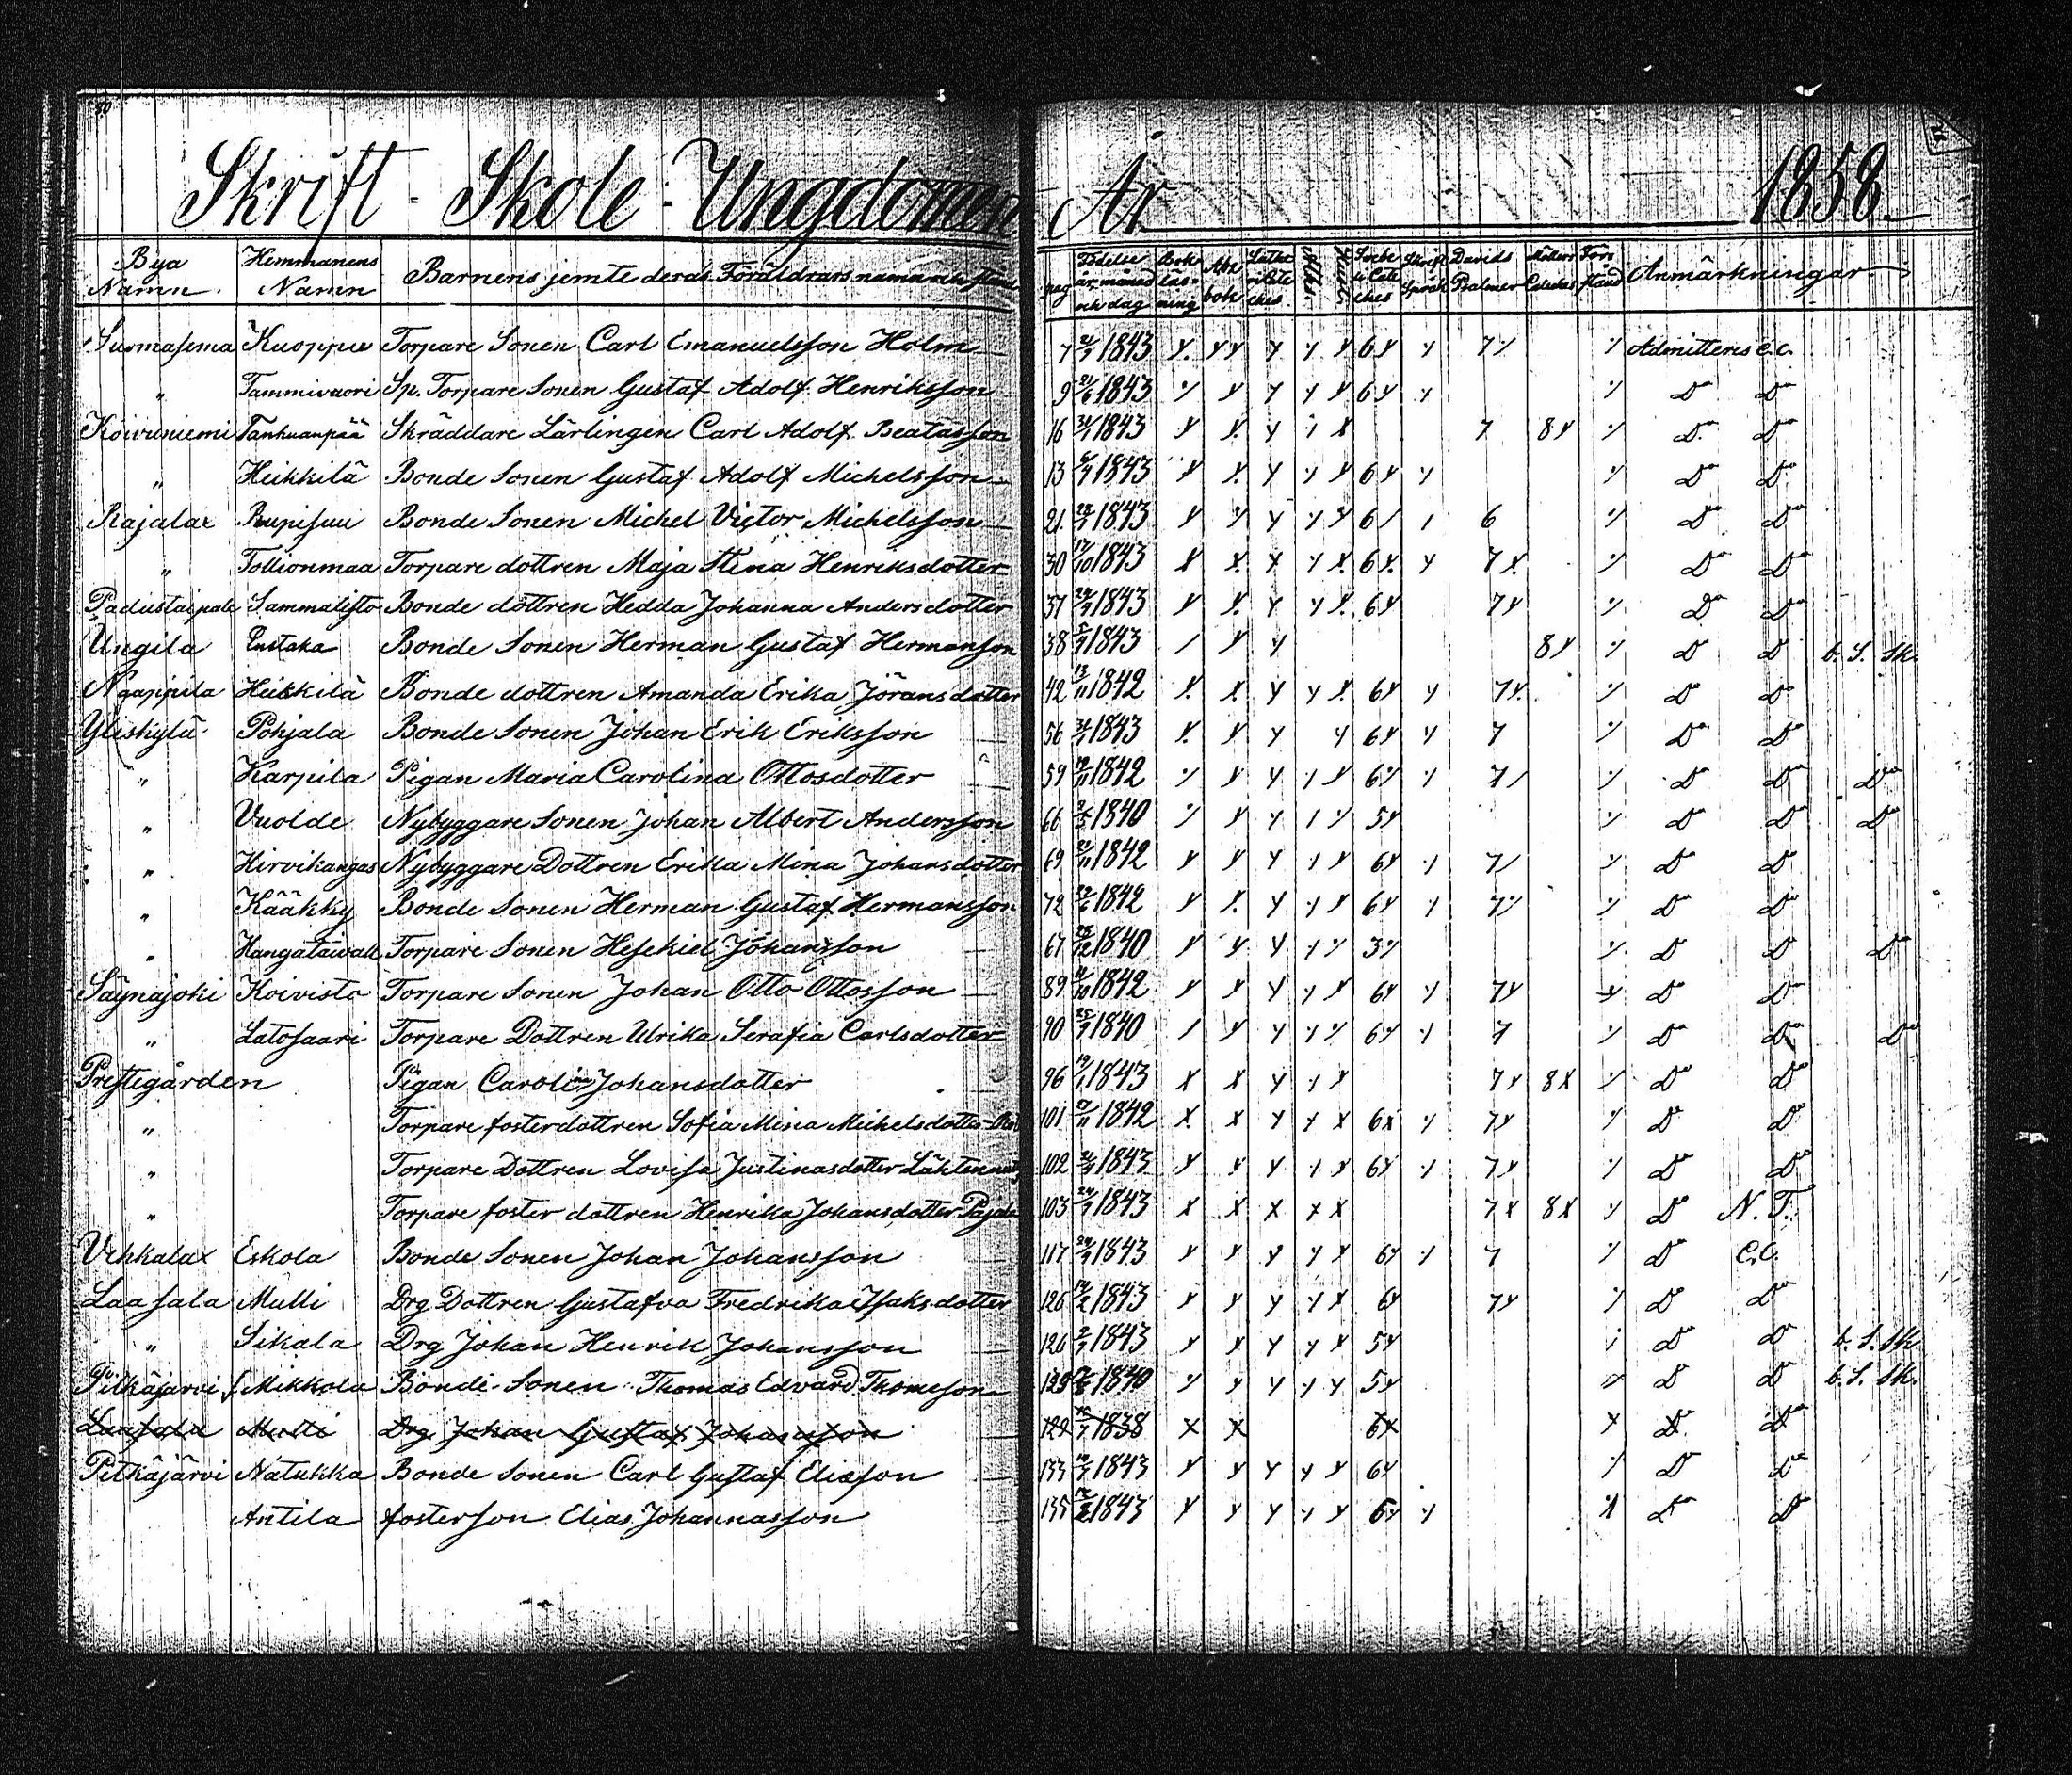 80
Skrift - Skole - Ungdomen År 1858
Bya Namn. Hemmanens Namn Barnens jemte deras Föräldrars namn och stånd pag Födelse år, månad och dag Bok läs- ning Abc bok Luthe rilla Cate ches Skrift Språk Davids Psalmer Förstånd Anmärkningar
Suomasema Kuoppu Torpare Sonen Carl Emanuelsson Holm 7 1843 Y. YY Y Y Y 6Y Y 7Y Admitteres c.c.
" Tammivuori Sp. Torpare Sonen Gustaf Adolf Henriksson 9 21/6 1843 Y Y Y Y 6Y Y Do Do
Koivuniemi Tanhuanpää Skräddare Lärlingen Carl Adolf Beatasson 16 1843 Y Y. Y X 7 8Y Do Do
" Heikkilä Bonde Sonen Gustaf Adolf Michelsson 13 1843 Y Y. Y Y Y 6Y Y Do Do
Rajalax Rupisuu Bonde Sonen Michel Victor Michelsson 21. 1843 Y Y Y Y Y 6/ / 6 Do Do
" Tottionmaa Torpare dottren Maja Stina Henriksdotter 30 17/10 1843 X X. X Y X. 6Y. Y 7X. Do Do
Padustaipale Sammalisto Bonde dottren Hedda Johanna Andersdotter 37 1843 Y Y. Y Y Y. 6Y 7Y Do Do
Ungila Eustaka Bonde Sonen Herman Gustaf Hermanson 38 1843 / Y Y 8Y Do Do b. S. Sk.
Naappila Heikkilä Bonde dottren Amanda Erika Jöransdotter 42 13/11 1842 X. X Y Y X. 6Y Y 7Y. Do Do
Yliskylä Pohjala Bonde Sonen Johan Erik Eriksson 56 1843 Y. Y Y Y 6Y Y 7 Do Do
" Karpila Pigan Maria Carolina Ottosdotter 59 1842 Y Y Y Y Y 6Y Y 7/ Do Do Do
" Vuolde Nybyggare Sonen Johan Albert Andersson 66 1840 Y Y Y / Y 5Y Do Do Do
" Hirvikangas Nybyggare Dottren Erika Mina Johansdotter 69 1842 Y Y Y Y Y 6Y Y 7/ Do Do
" Kääkky Bonde Sonen Herman Gustaf Hermansson 72 22/6 1842 Y Y. Y Y Y 6Y Y 7Y Do Do
" Hangataivale Torpare Sonen Hesekiel Johansson 67 1840 Y Y Y Y Y 3Y Do Do Do
Säynäjoki Koivisto Torpare Sonen Johan Otto Ottosson 89 1842 Y Y Y Y Y 6Y Y 7Y Do Do
" Latosaari Torpare Dottren Ulrika Serafia Carlsdotter 90 1840 / Y Y Y Y 6Y Y 7 Do Do Do
Prestegården Pigan Carolina Johansdotter 96 1843 X X Y Y Y 7Y 8X Do Do
" Torpare fosterdottren Sofia Mina Michelsdotter 101 1842 X. X Y Y X 6X Y 7Y Do Do
" Torpare Dottren Lovisa Justinasdotter 102 1843 Y Y Y Y Y 6Y Y 7Y Do Do
" Torpare foster dottren Henrika Johansdotter 103 1843 X X X X X 7X 8X Do N. T.
Vehkalax Eskola Bonde Sonen Johan Johansson 117 1843 Y Y Y Y Y 6Y Y 7 Do C.C.
Laasala Mulli Drg Dottren Gustafva Fredrika Isaksdotter 126 1843 Y Y Y Y X 6Y 7Y Do Do
" Sikala Drg Johan Henrik Johansson 126 1843 Y Y Y Y Y 5Y Do Do b. S. Sk.
Pitkäjärvi Mikkola Bonde Sonen Thomas Edvard Thomeson 129 1840 Y Y Y Y Y 5Y Do Do b. S. Sk.
Laasala Mulli Drg Johan Gustaf Johansson 129 1838 X X 6X X Do Do
Pitkäjärvi Natukka Bonde Sonen Carl Gustaf Elisson 133 1843 Y Y Y Y Y 6Y Do Do
Antila fosterson Elias Johannasson 135 1843 Y Y Y Y Y 6Y Y Do Do